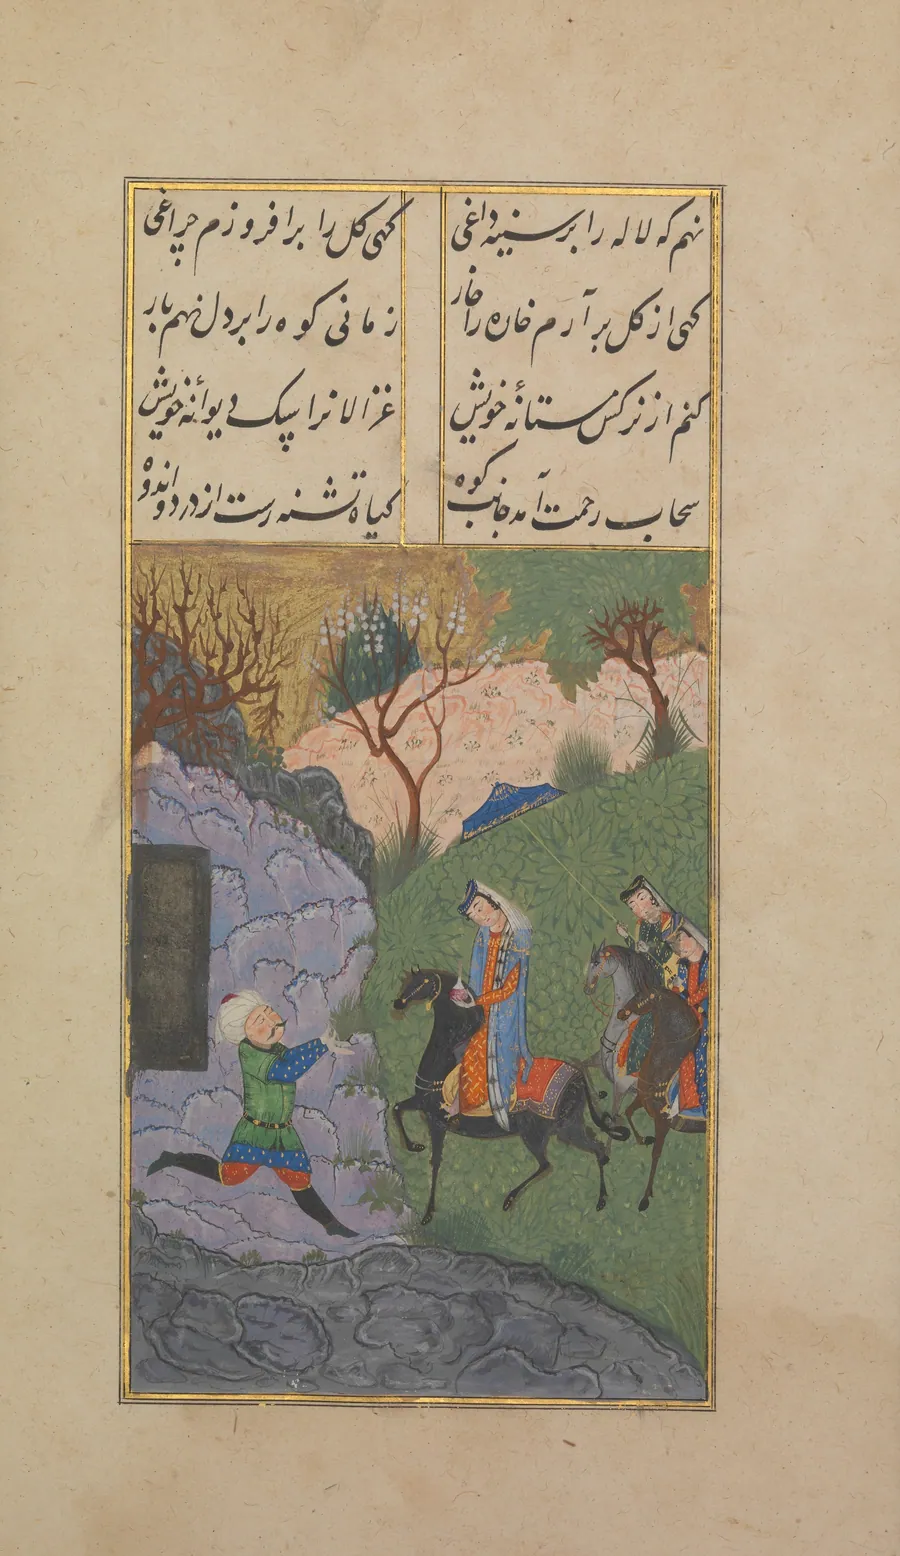 نهم که لاله را بر سینه داغی
کهی کل را برافروزم چراغی
کهی از کل برآرم خان را خار
زمانی کوه را بر دل نهم بار
کنم از نرکس مستانهٔ خویش
غزالانرا سک دیوانهٔ خویش
سحاب رحمت آمد جانب کوه
کیاه تشنه رست از درد و اندوه